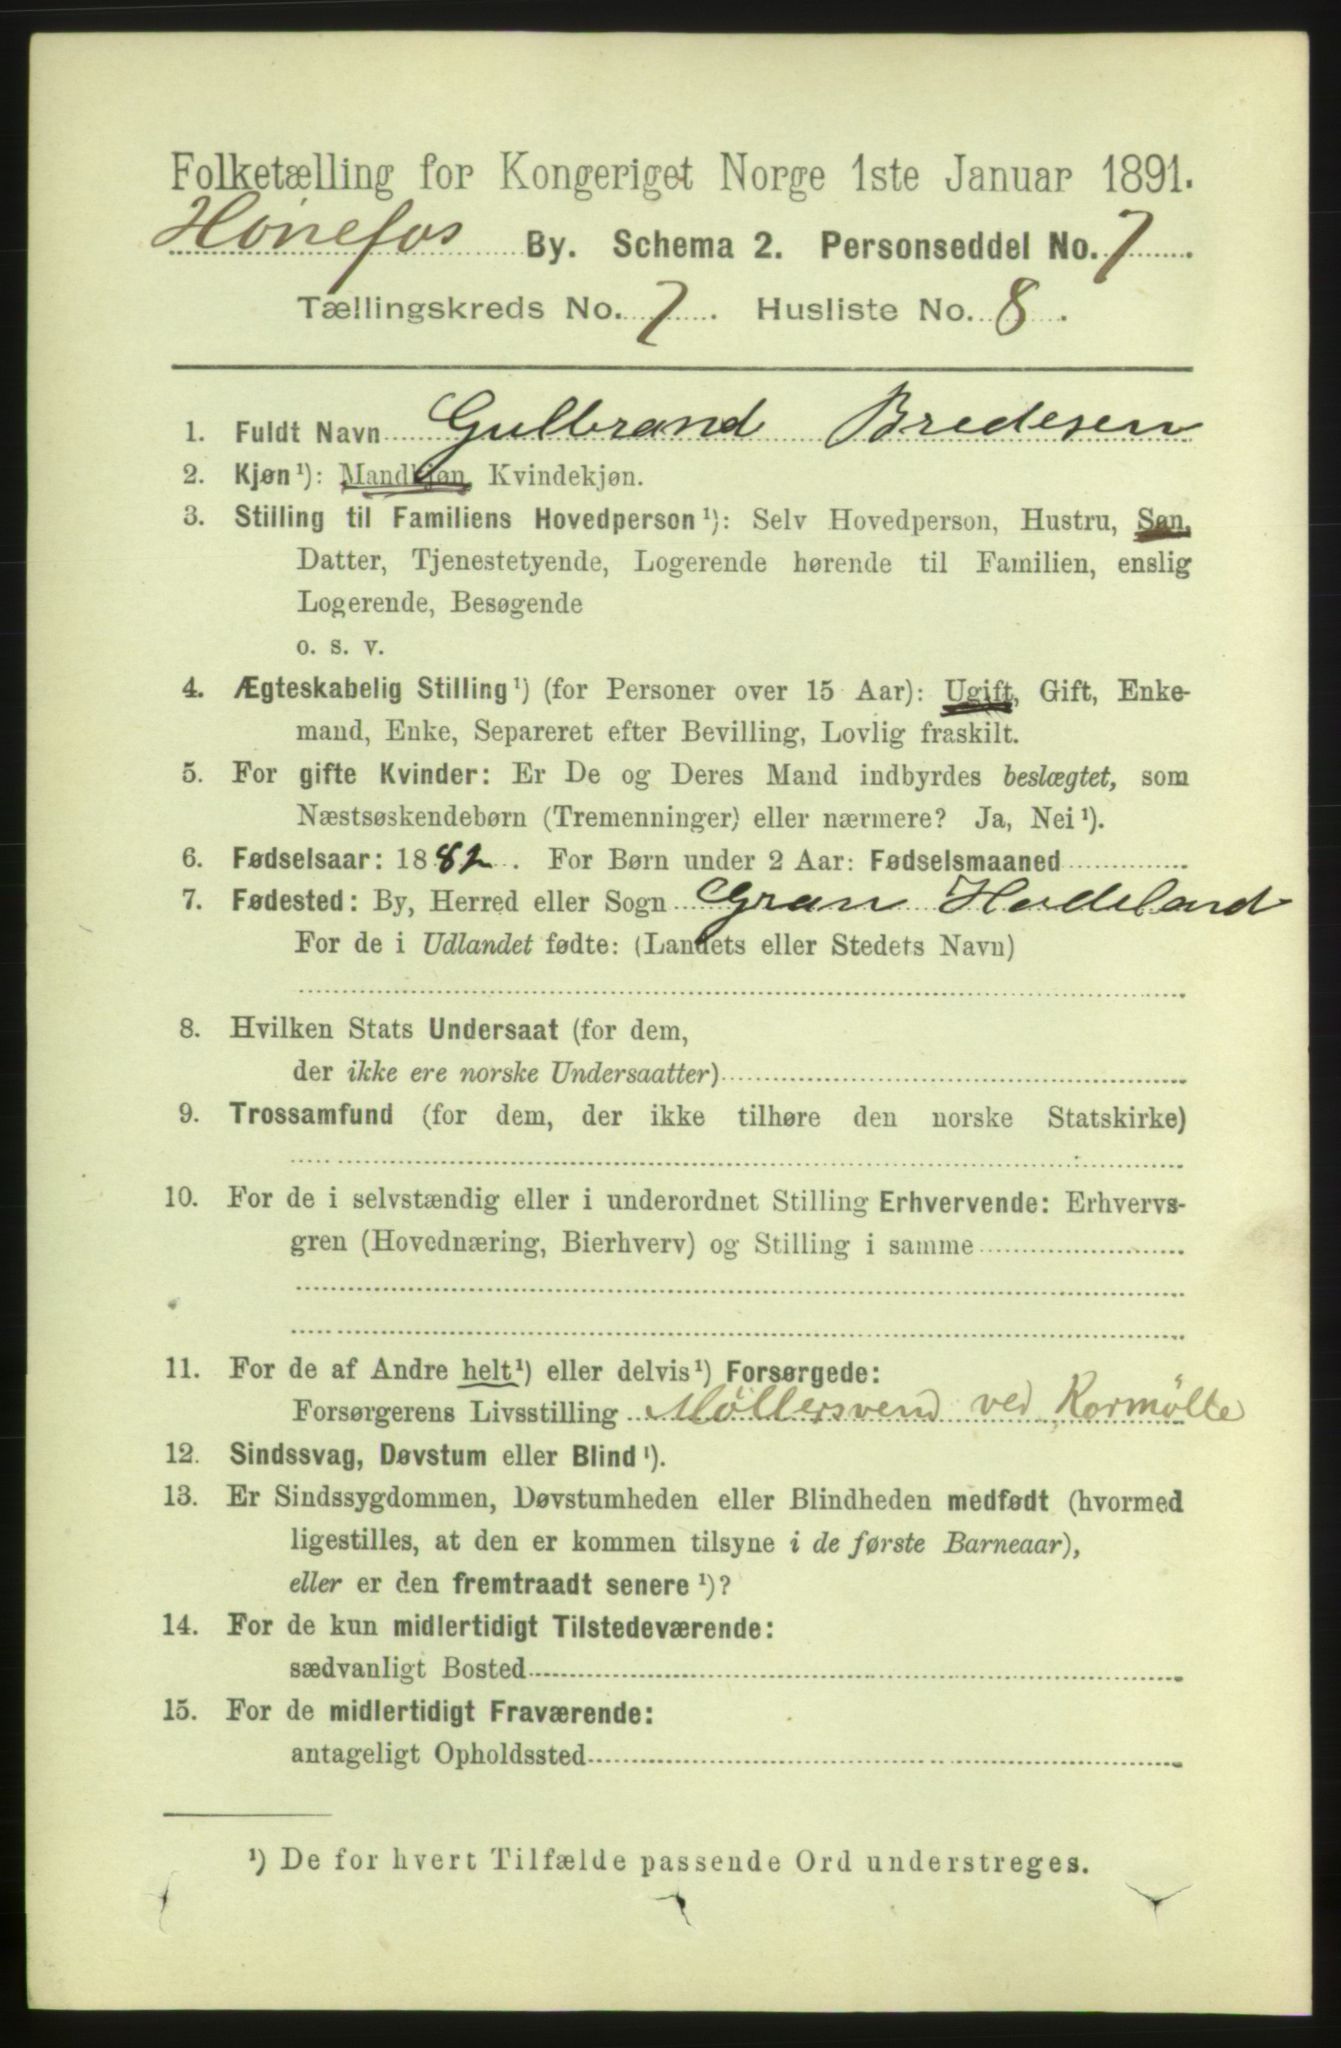 Folketælling for Kongeriget Norge 1ste Januar 1891.
Hønefos By. Schema 2. Personseddel No. 7
Tællingskreds No. 7. Husliste No. 8.
1. Fuldt Navn Gulbrand Bredesen
2. Kjøn¹): Mandkjøn, Kvindekjøn.
3. Stilling til Familiens Hovedperson¹): Selv Hovedperson, Hustru, Søn,
Datter, Tjenestetyende, Logerende hørende til Familien, enslig
Logerende, Besøgende
o. s. v.
4. Ægteskabelig Stilling¹) (for Personer over 15 Aar): Ugift, Gift, Enke-
mand, Enke, Separeret efter Bevilling, Lovlig fraskilt.
5. For gifte Kvinder: Er De og Deres Mand indbyrdes beslægtet, som
Næstsøskendebørn (Tremenninger) eller nærmere? Ja, Nei¹).
6. Fødselsaar: 1882. For Børn under 2 Aar: Fødselsmaaned
7. Fødested: By, Herred eller Sogn Gran Hadeland
For de i Udlandet fødte: (Landets eller Stedets Navn)
8. Hvilken Stats Undersaat (for dem,
der ikke ere norske Undersaatter)
9. Trossamfund (for dem, der ikke tilhøre den norske Statskirke)
10. For de i selvstændig eller i underordnet Stilling Erhvervende: Erhvervs-
gren (Hovednæring, Bierhverv) og Stilling i samme
11. For de af Andre helt¹) eller delvis¹) Forsørgede:
Forsørgerens Livsstilling Møllersvend ved Kormølle
12. Sindssvag, Døvstum eller Blind¹).
13. Er Sindssygdommen, Døvstumheden eller Blindheden medfødt (hvormed
ligestilles, at den er kommen tilsyne i de første Barneaar),
eller er den fremtraadt senere¹)?
14. For de kun midlertidigt Tilstedeværende:
sædvanligt Bosted
15. For de midlertidigt Fraværende:
antageligt Opholdssted
¹) De for hvert Tilfælde passende Ord understreges.